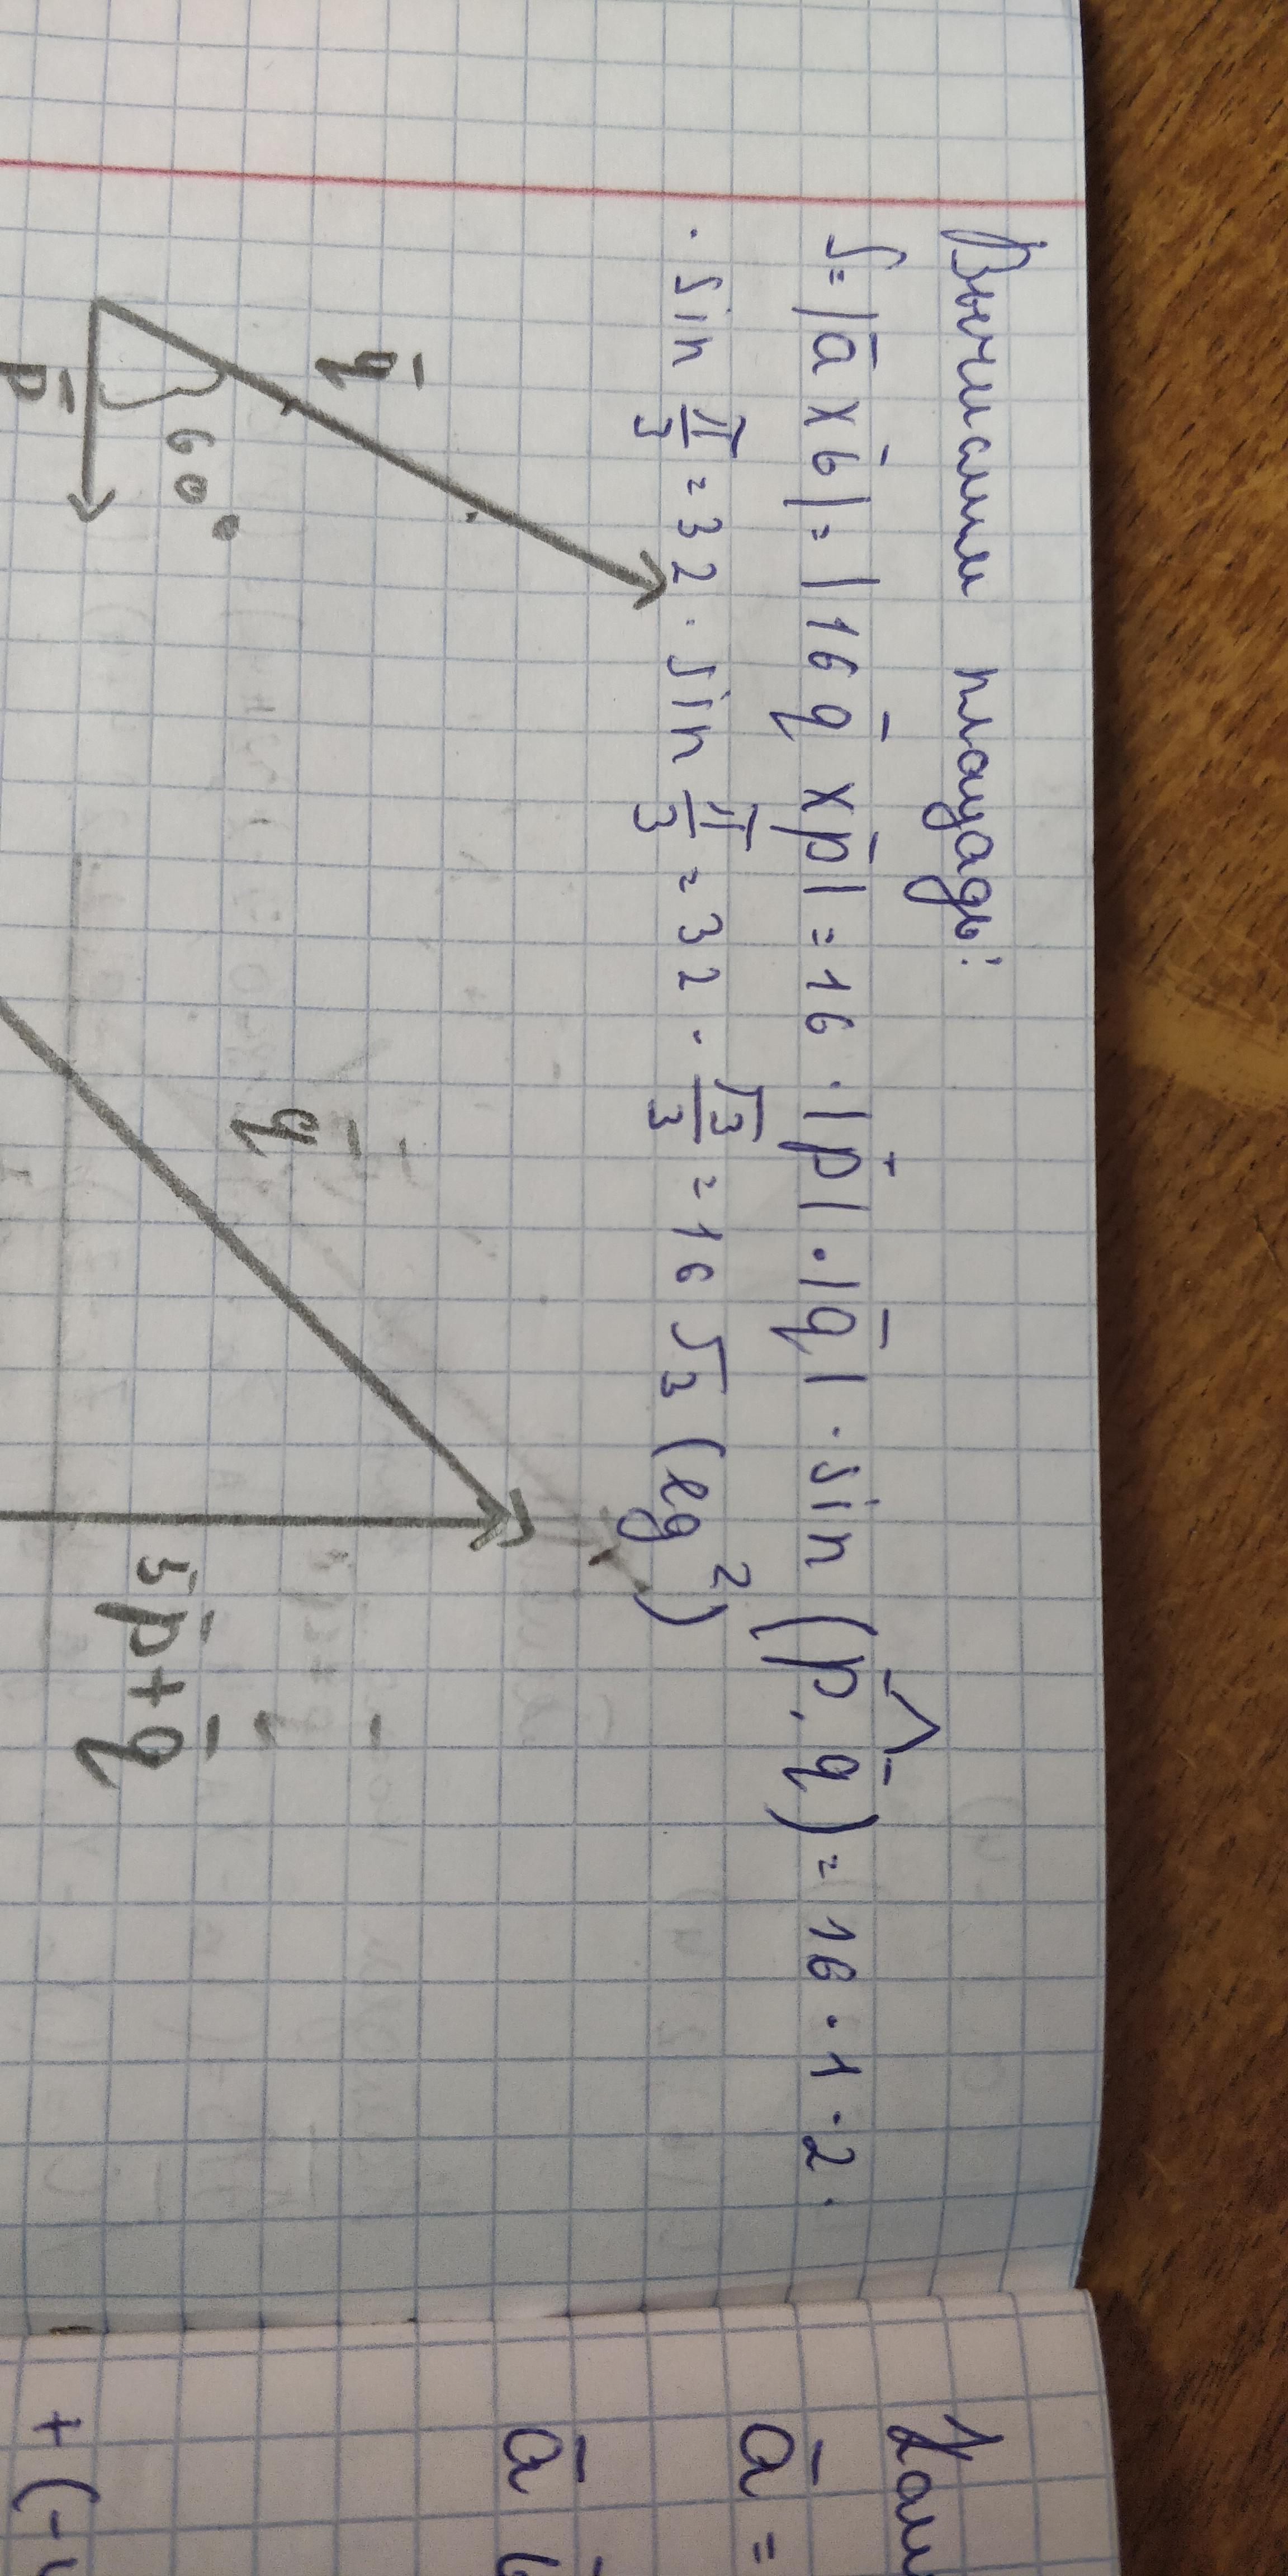 Вычислим площадь:
S = |a̅ x b̅| = |16 q̅ x p̅| = 16 · |p̅| · |q̅| · sin (p̅,^ q̅) = 16 · 1 · 2 ·
· sin π/3 = 32 · sin π/3 = 32 · √3/3 = 16 √3 (eg²)
q̅
60°
p̅
q̅
5p̅+q̅
a̅ =
a̅
+ (-